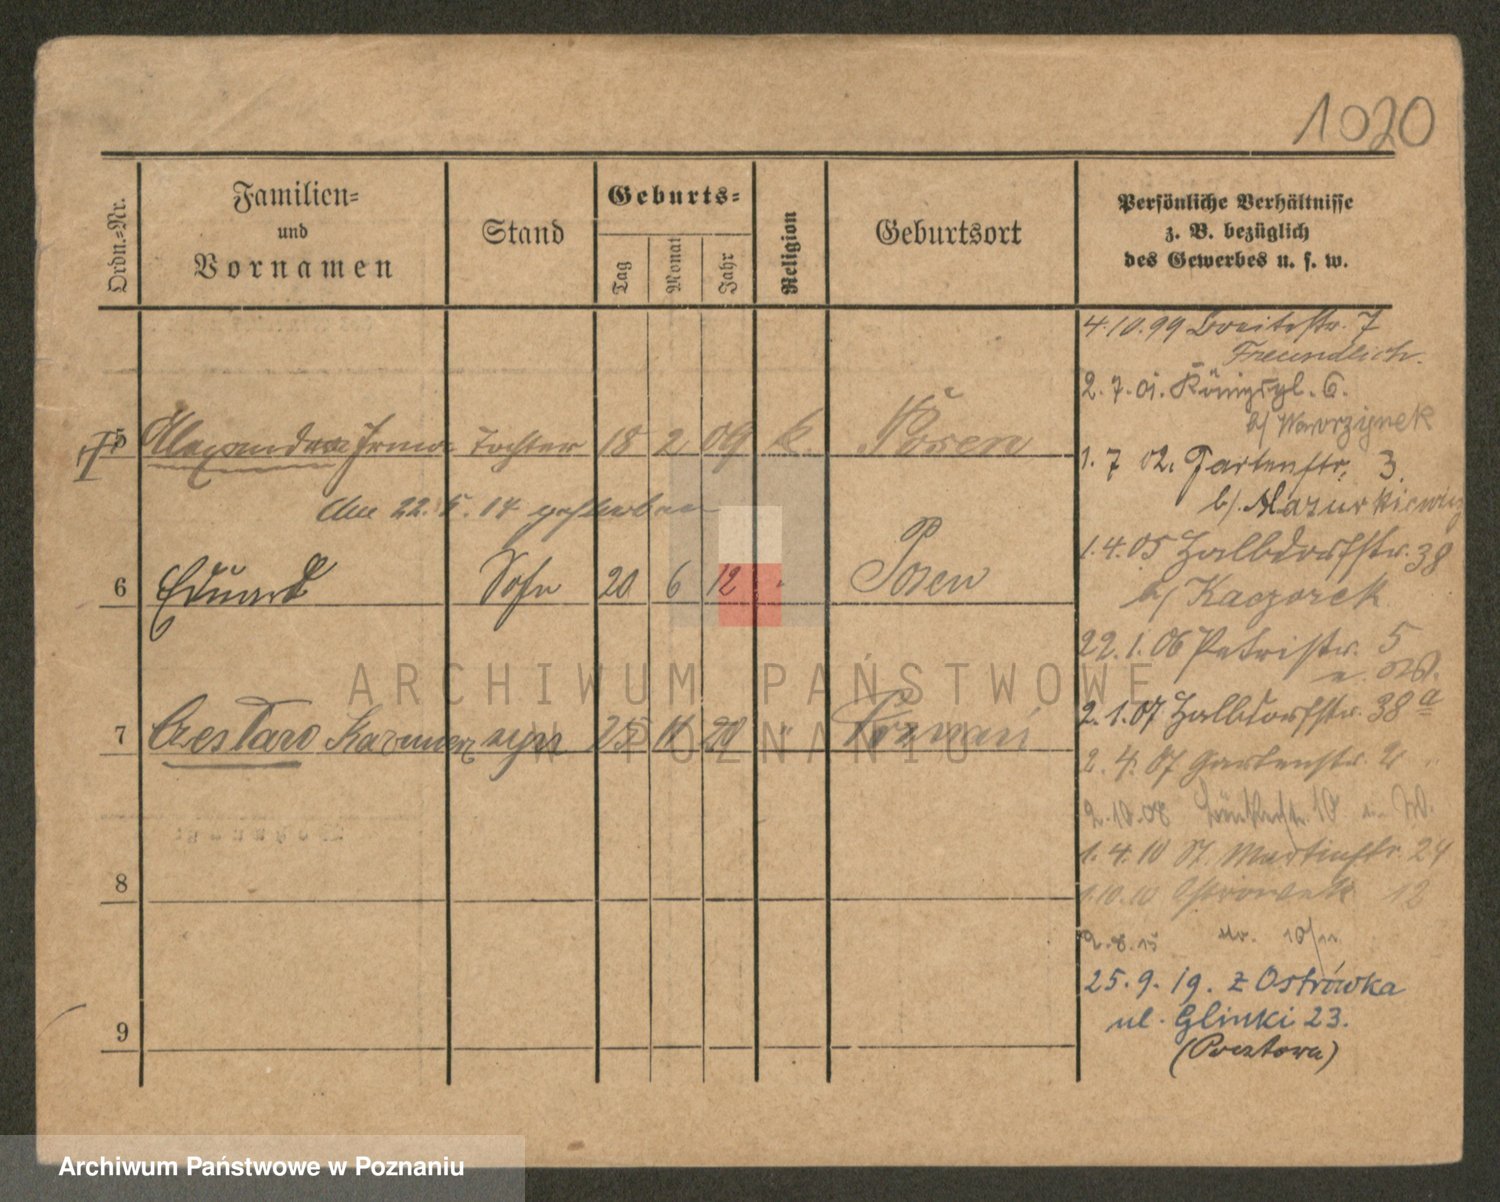 1020
Ordn.=Nr.
Familien=
und
Vornamen
Stand
Geburts=
Tag
Monat
Jahr
Religion
Geburtsort
Persönliche Verhältnisse
z. B. bezüglich
des Gewerbes u. s. w.
4.10.99 Breitestr. 7
Freundlich.
2.7.01. Königspl. 6.
b/ Wawrzynek
5 Alexandra Irma Tochter 18 2 09 k. Posen
1.7 02. Gartenstr. 3.
am 22. 5. 14 gestorben
b/. Mazurkiewicz
1.4.05 Halbdorfstr. 38
6 Eduard Sohn 20 6 12 " Posen
b/ Kaczorek
22.1.06 Petristr. 5
2.1.07 Halbdorfstr. 38 a
7 Czesław syn 25 11 20 " Poznań
2.4.07 Gartenstr. 2
2.10.08 10
1.4.10 St. Martinstr. 24
8
1.10.10 Ostrowek 12
2.8.15 10/11
25.9.19. z Ostrówka
ul. Glinki 23.
9
(Pocztowa)
ARCHIWUM PAŃSTWOWE
W POZNANIU
Archiwum Państwowe w Poznaniu